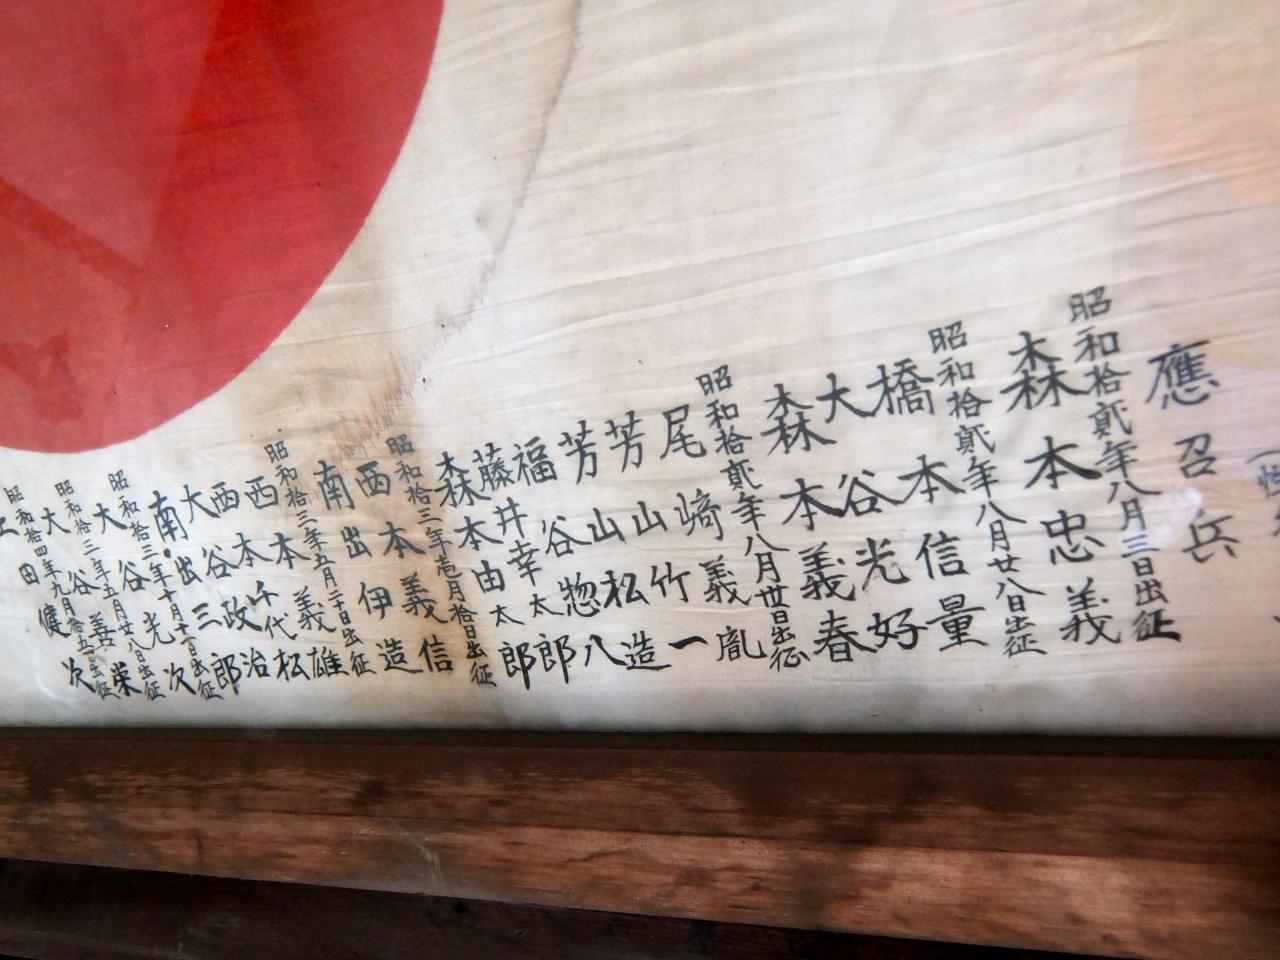 應召兵
昭和拾貳年八月三日出征
森本忠義
昭和拾貳年八月廿八日出征
橋本信量
大谷光好
森本義春
昭和拾貳年八月廿日出征
尾﨑義胤
芳山竹一
芳山松造
福谷惣八
藤井幸太郎
森本由太郎
昭和拾三年壱月拾日出征
西本義信
南出伊造
昭和拾三年五月二十日出征
西本義雄
西本千代松
大谷政治
南出三郎
昭和拾三年十月十一日出征
大谷光次
昭和拾三年五月廿八日出征
大谷義栄
昭和拾四年九月拾五日出征
田健次